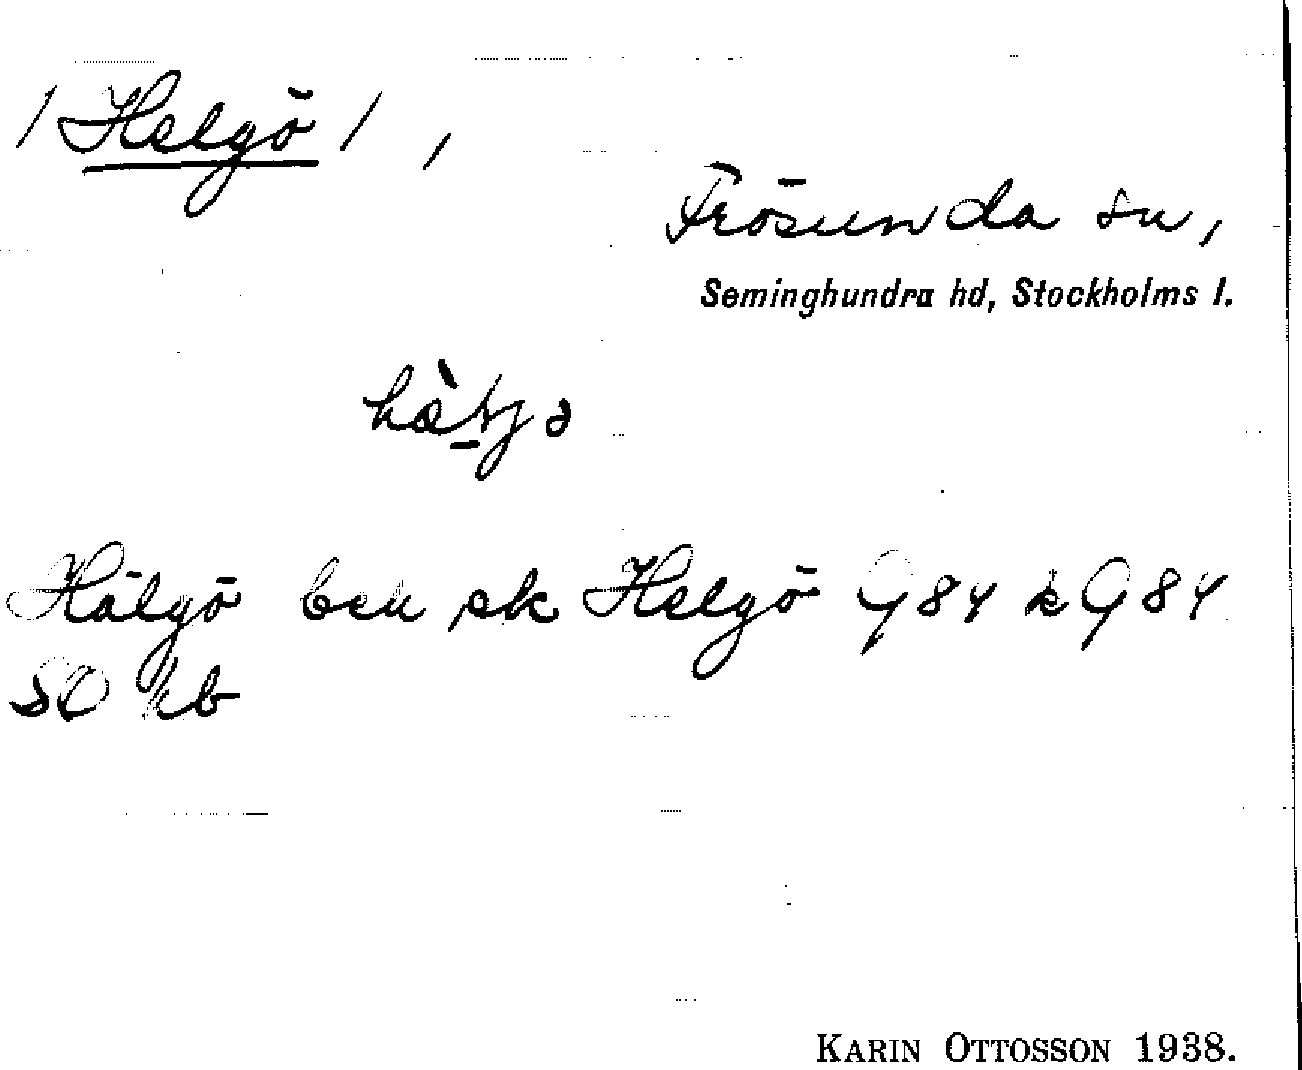 /Helgö/,
Frösunda sn,
Seminghundra hd, Stockholms l.
Hälgö ben sk Helgö G84 k G84
SO kb
KARIN OTTOSSON 1938.